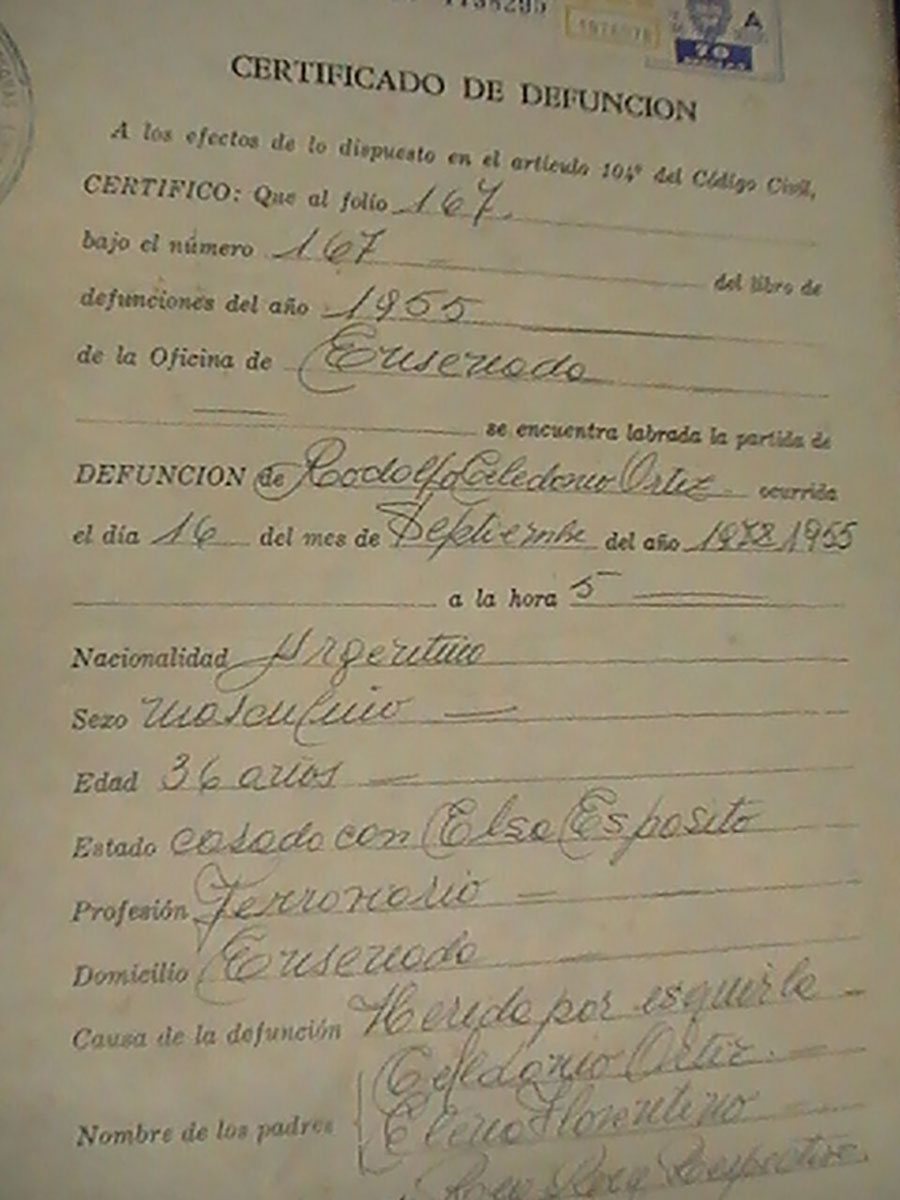 A
CERTIFICADO DE DEFUNCION
A los efectos de lo dispuesto en el artículo 104º del Código Civil,
CERTIFICO: Que al folio 167.
bajo el número 167 del libro de
defunciones del año 1955
de la Oficina de Ensenada
se encuentra labrada la partida de
DEFUNCION de Rodolfo Celedonio Ortiz ocurrida
el día 16 del mes de Septiembre del año 1972 1955
a la hora 5
Nacionalidad Argentino
Sexo masculino
Edad 36 años
Estado casado con Elsa Esposito
Profesión Ferroviario
Domicilio Ensenada
Causa de la defunción Herida por esquirla
Celdonio Ortiz.
Nombre de los padres Florentino